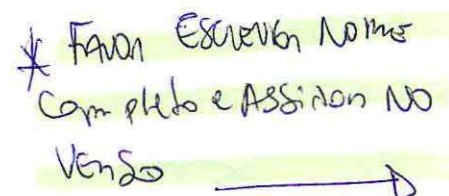 * FAVOR ESCREVER NOME
Completo e ASSINAR NO
VERSO